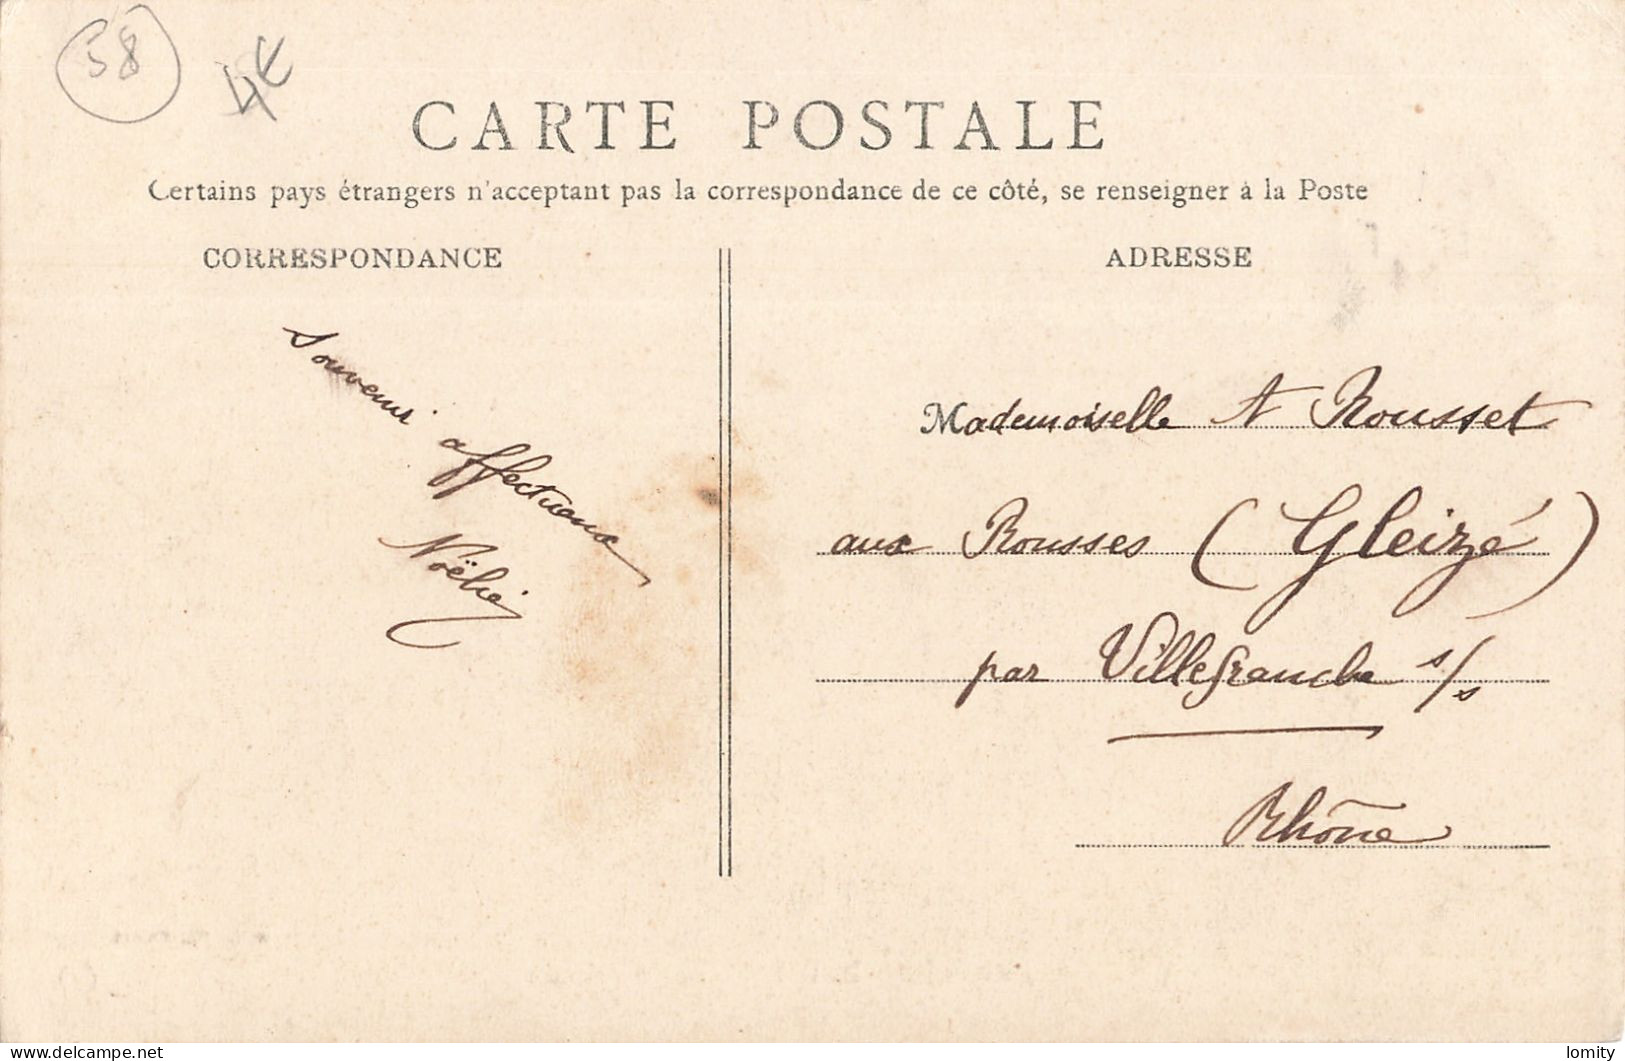 58
4€
CARTE POSTALE
Certains pays étrangers n'acceptant pas la correspondance de ce côté, se renseigner à la Poste
CORRESPONDANCE
Souvenir affectueux
Noëlie
ADRESSE
Mademoiselle A Rousset
aux Rousses (Gleizé)
par Villefranche s/s
Rhône
lomity
www.delcampe.net